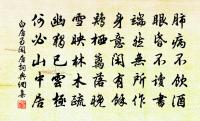 肺病不飲酒
眼昏不讀書
端然無所作
身意閑有餘
鷄栖籬落晚
雪映林木疏
幽獨已云極
何必山中居
白居易閑居